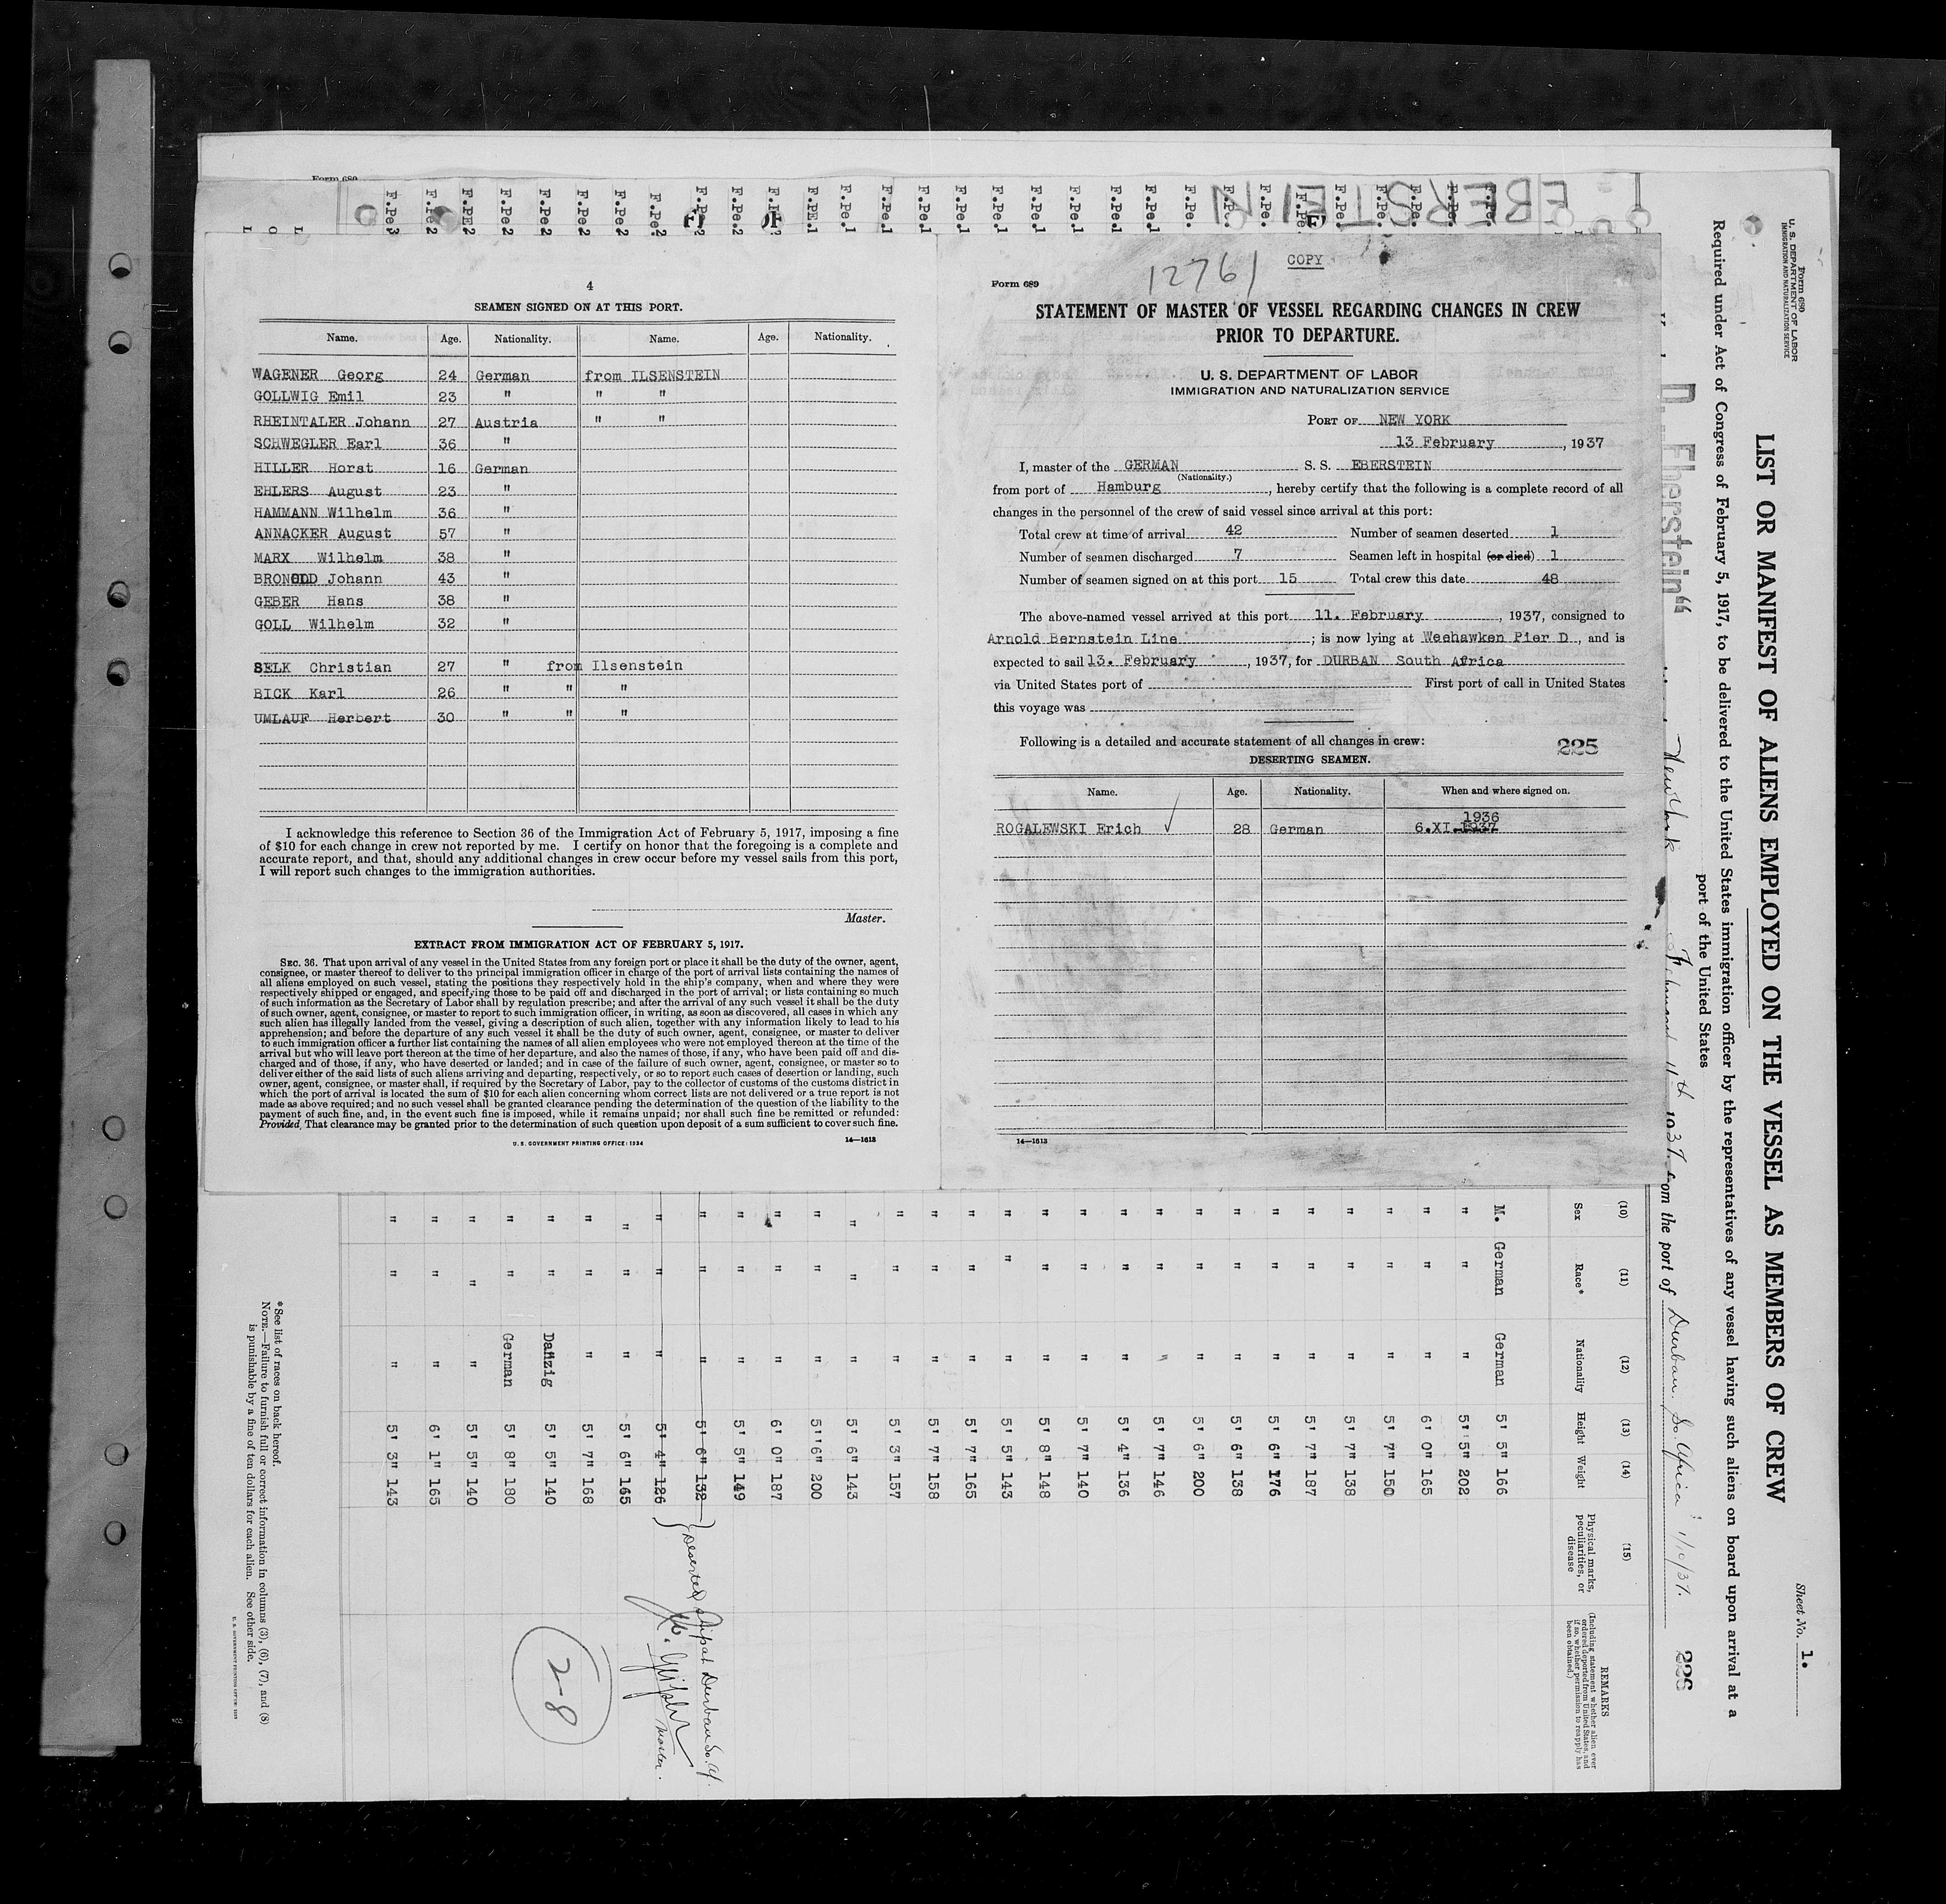 4
SEAMEN SIGNED ON AT THIS PORT.
Name. Age. Nationality. Name. Age. Nationality.
WAGENER Georg 24 German from ILSENSTEIN
GOLLWIG Emil 23 " " "
RHEINTALER Johann 27 Austria " "
SCHWEGLER Earl 36 "
HILLER Horst 16 German
EHLERS August 23 "
HAMMANN Wilhelm 36 "
ANNACKER August 57 "
MARX Wilhelm 38 "
Johann 43 "
GEBER Hans 38 "
GOLL Wilhelm 32 "
SELK Christian 27 " from Ilsenstein
BICK Karl 26 " " "
UMLAUF Herbert 30 " " "
I acknowledge this reference to Section 36 of the Immigration Act of February 5, 1917, imposing a fine
of $10 for each change in crew not reported by me. I certify on honor that the foregoing is a complete and
accurate report, and that, should any additional changes in crew occur before my vessel sails from this port,
I will report such changes to the immigration authorities.
Master.
EXTRACT FROM IMMIGRATION ACT OF FEBRUARY 5, 1917.
SEC. 36. That upon arrival of any vessel in the United States from any foreign port or place it shall be the duty of the owner, agent,
consignee, or master thereof to deliver to the principal immigration officer in charge of the port of arrival lists containing the names of
all aliens employed on such vessel, stating the positions they respectively hold in the ship's company, when and where they were
respectively shipped or engaged, and specifying those to be paid off and discharged in the port of arrival; or lists containing so much
of such information as the Secretary of Labor shall by regulation prescribe; and after the arrival of any such vessel it shall be the duty
of such owner, agent, consignee, or master to report to such immigration officer, in writing, as soon as discovered, all cases in which any
such alien has illegally landed from the vessel, giving a description of such alien, together with any information likely to lead to his
apprehension; and before the departure of any such vessel it shall be the duty of such owner, agent, consignee, or master to deliver
to such immigration officer a further list containing the names of all alien employees who were not employed thereon at the time of the
arrival but who will leave port thereon at the time of her departure, and also the names of those, if any, who have been paid off and dis-
charged and of those, if any, who have deserted or landed; and in case of the failure of such owner, agent, consignee, or master so to
deliver either of the said lists of such aliens arriving and departing, respectively, or so to report such cases of desertion or landing, such
owner, agent, consignee, or master shall, if required by the Secretary of Labor, pay to the collector of customs of the customs district in
which the port of arrival is located the sum of $10 for each alien concerning whom correct lists are not delivered or a true report is not
made as above required; and no such vessel shall be granted clearance pending the determination of the question of the liability to the
payment of such fine, and, in the event such fine is imposed, while it remains unpaid; nor shall such fine be remitted or refunded:
Provided, That clearance may be granted prior to the determination of such question upon deposit of a sum sufficient to cover such fine.
U. S. GOVERNMENT PRINTING OFFICE: 1934 14—1613
COPY
12761
Form 689
STATEMENT OF MASTER OF VESSEL REGARDING CHANGES IN CREW
PRIOR TO DEPARTURE.
U. S. DEPARTMENT OF LABOR
IMMIGRATION AND NATURALIZATION SERVICE
PORT OF NEW YORK
13 February, 1937
I, master of the GERMAN S. S. EBERSTEIN
(Nationality.)
from port of Hamburg, hereby certify that the following is a complete record of all
changes in the personnel of the crew of said vessel since arrival at this port:
Total crew at time of arrival 42 Number of seamen deserted 1
Number of seamen discharged 7 Seamen left in hospital (or died) 1
Number of seamen signed on at this port 15 Total crew this date 48
The above-named vessel arrived at this port 11. February, 1937, consigned to
Arnold Bernstein Line; is now lying at Weehawken Pier D, and is
expected to sail 13. February, 1937, for DURBAN South Africa
via United States port of First port of call in United States
this voyage was
Following is a detailed and accurate statement of all changes in crew:
225
DESERTING SEAMEN.
Name. Age. Nationality. When and where signed on.
1936
ROGALEWSKI Erich 28 German 6.XI.1937
14—1613
Form 689
U. S. DEPARTMENT OF LABOR
IMMIGRATION AND NATURALIZATION SERVICE
Sheet No. 1.
LIST OR MANIFEST OF ALIENS EMPLOYED ON THE VESSEL AS MEMBERS OF CREW
Required under Act of Congress of February 5, 1917, to be delivered to the United States immigration officer by the representatives of any vessel having such aliens on board upon arrival at a
port of the United States
"Eberstein" New York February 11th 1937 from the port of Durban So. Africa 1/10/37.
226
EBERSTEIN
(10) (11) (12) (13) (14) (15)
Sex Race* Nationality Height Weight Physical marks, peculiarities, or disease
REMARKS
(Including statement whether alien ever ordered deported from United States, and if so, whether permission to reapply has been obtained.)
M. German German 5' 5" 166
" " " 5' 5" 202
" " " 6' 0" 165
" " " 5' 7" 150
" " " 5' 7" 138
" " " 5' 7" 187
" " " 5' 6" 176
" " " 5' 6" 138
" " " 5' 6" 200
" " " 5' 7" 146
" " " 5' 4" 136
" " " 5' 7" 140
" " " 5' 8" 148
" " " 5' 5" 143
" " " 5' 7" 165
" " " 5' 7" 158
" " " 5' 3" 157
" " " 5' 6" 143
" " " 5' 6" 200
" " " 6' 0" 187
" " " 5' 5" 149
" " " 5' 6" 132
" " " 5' 4" 126
Deserted Ship at Durban So. Af.
Master.
" " " 5' 6" 165
" " " 5' 7" 168
" " Danzig 5' 5" 140
" " German 5' 8" 180
" " " 5' 5" 140
" " " 6' 1" 165
" " " 5' 3" 143
28
*See list of races on back hereof.
NOTE.—Failure to furnish full or correct information in columns (3), (6), (7), and (8)
is punishable by a fine of ten dollars for each alien. See other side.